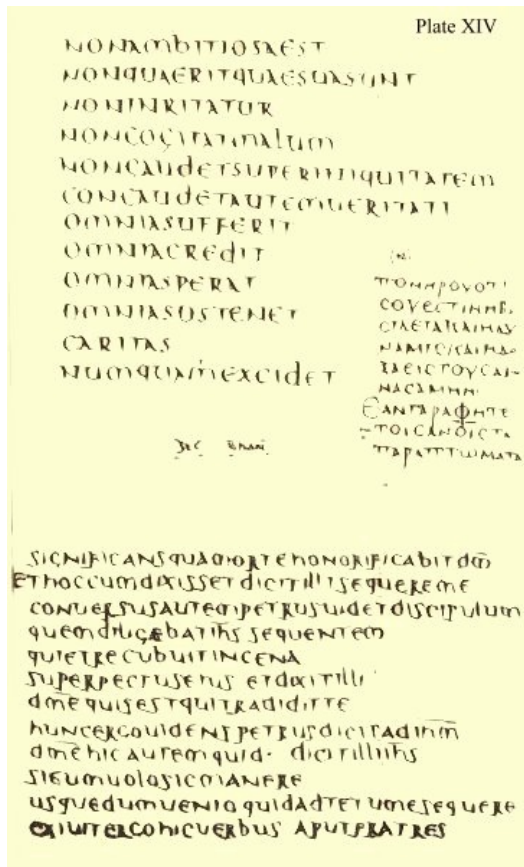 Plate XIV
NONAMBITIOSAEST
NONQUAERITQUAESUASUNT
NONINRITATUR
NONCOGITATMALUM
NONGAUDETSUPERINIQUITATEM
CONGAUDETAUTEMUERITATI
OMNIASUFFERIT
OMNIACREDIT
OMNIASPERAT
OMNIASUSTENET
CARITAS
NUMQUAMEXCIDET
ΠΟΝΗΡΟΥΟΤΙ
CΟΥΕCΤΙΝΗΒΑ
CΙΛΕΙΑΚΑΙΗΔΥ
ΝΑΜΙCΚΑΙΗΔΟ
ΞΑΕΙCΤΟΥCΑΙ·
ΝΑCΑΜΗΝ·
ΕΑΝΓΑΡΑΦΗΤΕ
ΤΟΙCΑΝΟΙCΤΑ
ΠΑΡΑΠΤΩΜΑΤΑ
SIGNIFICANSQUAMORTEHONORIFICABITDM̅
ETHOCCUMDIXISSETDICITILLISEQUEREME
CONUERSUSAUTEMPETRUSUIDETDISCIPULUM
QUEMDILIGEBATIHS̅ SEQUENTEM
QUIETRECUBUITINCENA
SUPERPECTUSEIUS ETDIXITILLI
DM̅EQUISESTQUITRADIDITTE
HUNCERGOUIDENSPETRUSDICITADIHM̅
DM̅EHICAUTEMQUID· DICITILLIIHS̅
SIEUMUOLOSICMANERE
USQUEDUMUENIOQUIDADTETUMESEQUERE
EXIUITERGOHICUERBUS APUTFRATRES